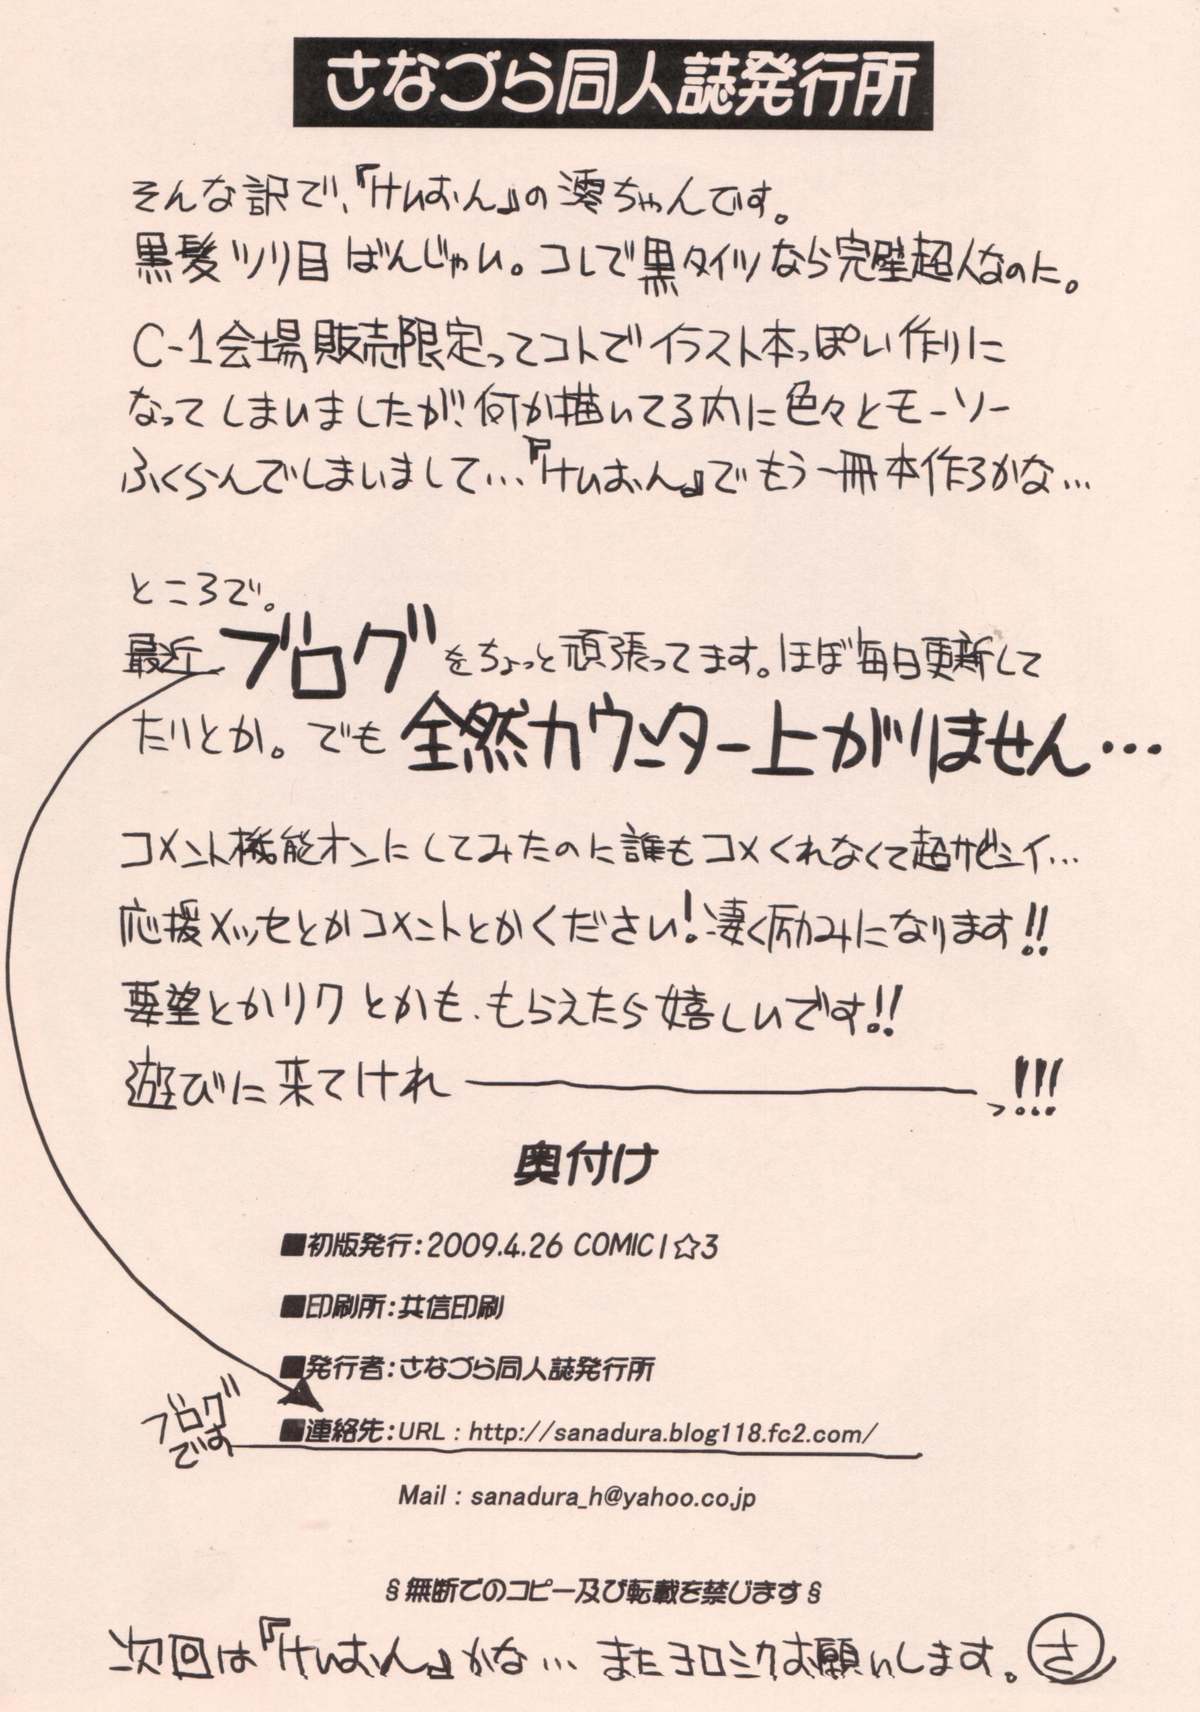 さなづら同人誌発行所
そんな訳で、『けいおん』の澪ちゃんです。
黒髪ツリ目ばんじゃい。コレで黒タイツなら完璧超人なのに。
C-1会場販売限定ってコトでイラスト本っぽい作りに
なってしまいましたが、何か描いてる内に色々とモーソー
ふくらんでしまいまして…『けいおん』でもう一冊本作ろかな…
ところで。
最近ブログをちょっと頑張ってます。ほぼ毎日更新して
たりとか。でも全然カウンター上がりません…
コメント機能オンにしてみたのに誰もコメくれなくて超サビシイ…
応援メッセとかコメントとかください!凄く励みになります!!
要望とかリクとかも、もらえたら嬉しいです!!
遊びに来てけれ――――っ!!!
奥付け
■初版発行:2009.4.26 COMIC1☆3
■印刷所:共信印刷
■発行者:さなづら同人誌発行所
ブログ
です
■連絡先:URL : http://sanadura.blog118.fc2.com/
Mail : sanadura_h@yahoo.co.jp
§無断でのコピー及び転載を禁じます§
次回は『けいおん』かな… またヨロシクお願いします。さ